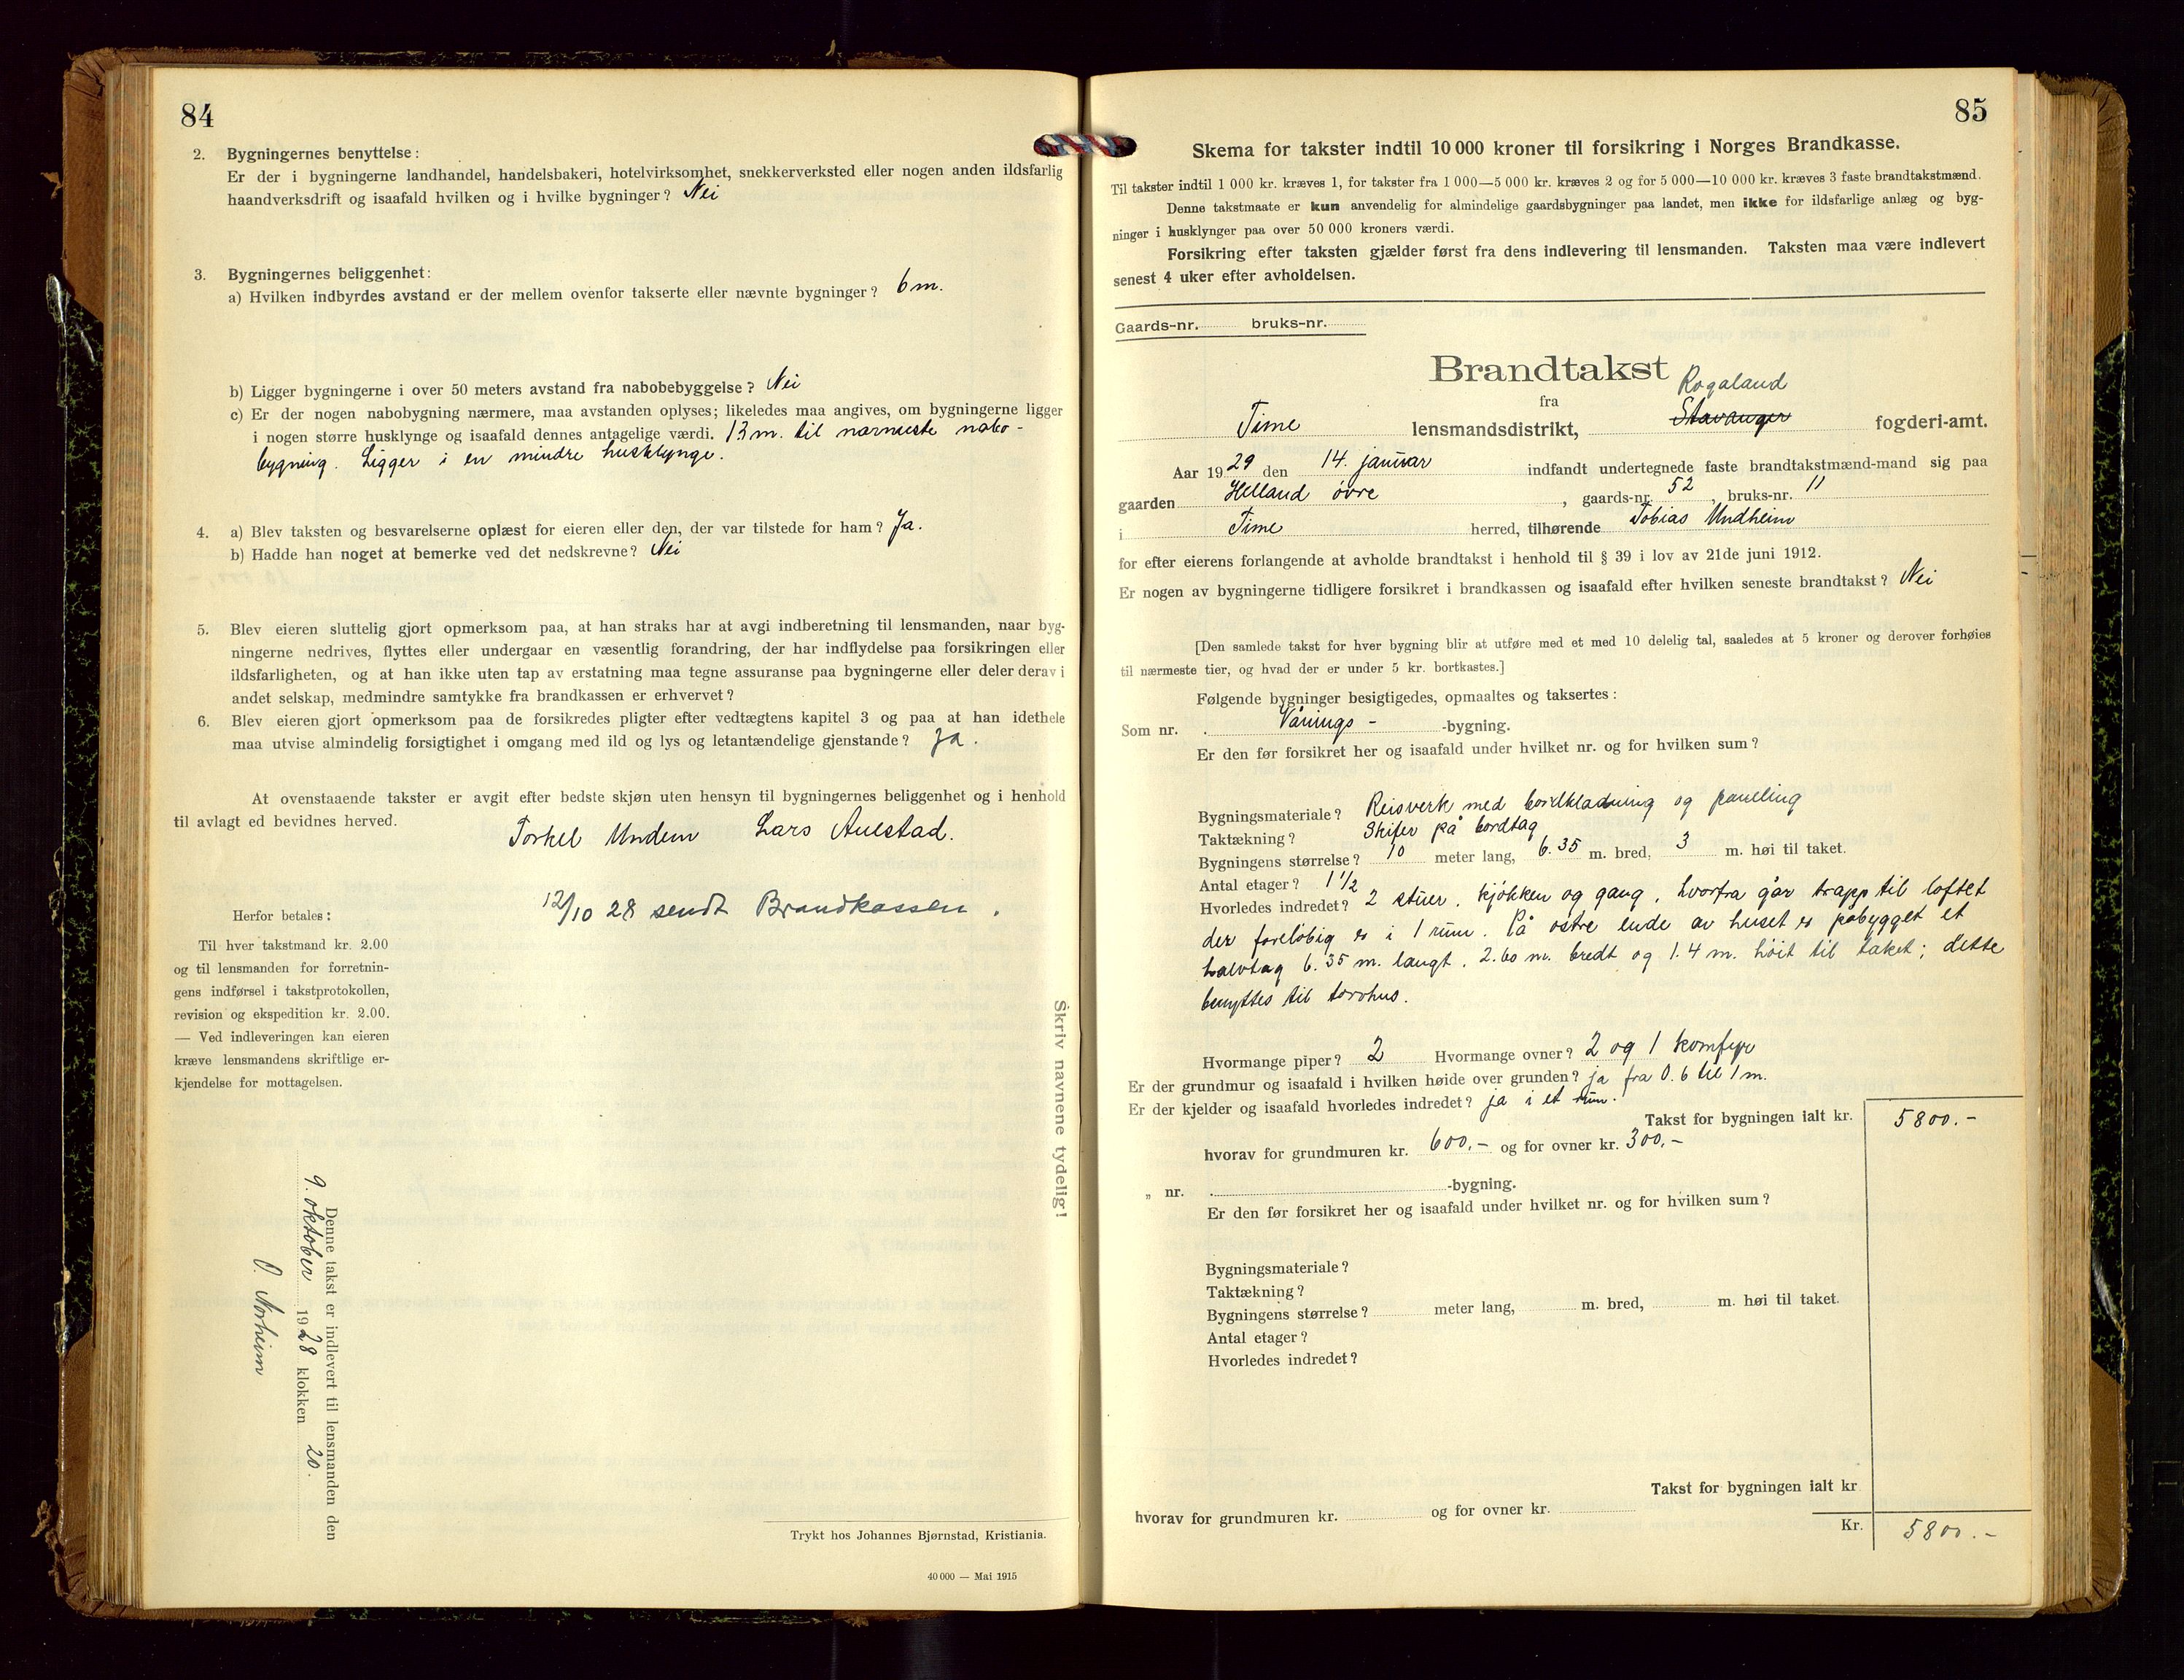 84
2. Bygningernes benyttelse:
Er der i bygningerne landhandel, handelsbakeri, hotelvirksomhet, snekkerverksted eller nogen anden ildsfarlig
haandverksdrift og isaafald hvilken og i hvilke bygninger? Nei
3. Bygningernes beliggenhet:
a) Hvilken indbyrdes avstand er der mellem ovenfor takserte eller nævnte bygninger? 6 m.
b) Ligger bygningerne i over 50 meters avstand fra nabobebyggelse? Nei
c) Er der nogen nabobygning nærmere, maa avstanden oplyses; likeledes maa angives, om bygningerne ligger
i nogen større husklynge og isaafald dennes antagelige værdi. 13 m. til nærmeste nabo-
bygning. Ligger i en mindre husklynge.
4. a) Blev taksten og besvarelserne oplæst for eieren eller den, der var tilstede for ham? Ja.
b) Hadde han noget at bemerke ved det nedskrevne? Nei
5. Blev eieren sluttelig gjort opmerksom paa, at han straks har at avgi indberetning til lensmanden, naar byg-
ningerne nedrives, flyttes eller undergaar en væsentlig forandring, der har indflydelse paa forsikringen eller
ildsfarligheten, og at han ikke uten tap av erstatning maa tegne assuranse paa bygningerne eller deler derav i
andet selskap, medmindre samtykke fra brandkassen er erhvervet?
6. Blev eieren gjort opmerksom paa de forsikredes pligter efter vedtægtens kapitel 3 og paa at han idethele
maa utvise almindelig forsigtighet i omgang med ild og lys og letantændelige gjenstande? Ja.
At ovenstaaende takster er avgit efter bedste skjøn uten hensyn til bygningernes beliggenhet og i henhold
til avlagt ed bevidnes herved.
Torkel Undem Lars Aulestad.
12/10 28 sendt Brandkassen.
Herfor betales:
Til hver takstmand kr. 2.00
og til lensmanden for forretnin-
gens indførsel i takstprotokollen,
revision og ekspedition kr. 2.00.
— Ved indleveringen kan eieren
kræve lensmandens skriftlige er-
kjendelse for mottagelsen.
Skriv navnene tydelig!
Denne takst er indlevert til lensmanden den
9. oktober 1928 klokken 20.
O. Norheim
Trykt hos Johannes Bjørnstad, Kristiania.
40 000 — Mai 1915
85
Skema for takster indtil 10 000 kroner til forsikring i Norges Brandkasse.
Til takster indtil 1 000 kr. kræves 1, for takster fra 1 000—5 000 kr. kræves 2 og for 5 000—10 000 kr. kræves 3 faste brandtakstmænd.
Denne takstmaate er kun anvendelig for almindelige gaardsbygninger paa landet, men ikke for ildsfarlige anlæg og byg-
ninger i husklynger paa over 50 000 kroners værdi.
Forsikring efter taksten gjælder først fra dens indlevering til lensmanden. Taksten maa være indlevert
senest 4 uker efter avholdelsen.
Gaards-nr. bruks-nr.
Brandtakst
fra Rogaland
Time lensmandsdistrikt, Stavanger fogderi-amt.
Aar 1929 den 14. januar indfandt undertegnede faste brandtakstmænd-mand sig paa
gaarden Helland øvre, gaards-nr. 52, bruks-nr. 11
i Time herred, tilhørende Tobias Undheim
for efter eierens forlangende at avholde brandtakst i henhold til § 39 i lov av 21de juni 1912.
Er nogen av bygningerne tidligere forsikret i brandkassen og isaafald efter hvilken seneste brandtakst? Nei
[Den samlede takst for hver bygning blir at utføre med et med 10 delelig tal, saaledes at 5 kroner og derover forhøies
til nærmeste tier, og hvad der er under 5 kr. bortkastes.]
Følgende bygninger besigtigedes, opmaaltes og taksertes:
Som nr. . Vånings- -bygning.
Er den før forsikret her og isaafald under hvilket nr. og for hvilken sum?
Bygningsmateriale? Reisverk med bordkladning og paneling
Taktækning? Skifer på bordtag
Bygningens størrelse? 10 meter lang, 6.35 m. bred, 3 m. høi til taket.
Antal etager? 1 1/2
Hvorledes indredet? 2 stuer, kjøkken og gang, hvorfra går trapp til loftet
der foreløbig er i 1 rum. På østre ende av huset er påbygget et
halvtag 6.35 m. langt, 2.60 m. bredt og 1.4 m. høit til taket; dette
benyttes til torvhus.
Hvormange piper? 2 Hvormange ovner? 2 og 1 komfyr
Er der grundmur og isaafald i hvilken høide over grunden? ja fra 0.6 til 1 m.
Er der kjelder og isaafald hvorledes indredet? ja i et rum.
Takst for bygningen ialt kr. 5800.-
hvorav for grundmuren kr. 600.- og for ovner kr. 300.-
„ nr. . -bygning.
Er den før forsikret her og isaafald under hvilket nr. og for hvilken sum?
Bygningsmateriale?
Taktækning?
Bygningens størrelse? meter lang, m. bred, m. høi til taket.
Antal etager?
Hvorledes indredet?
Takst for bygningen ialt kr
hvorav for grundmuren kr. og for ovner kr.
Kr. 5800.-